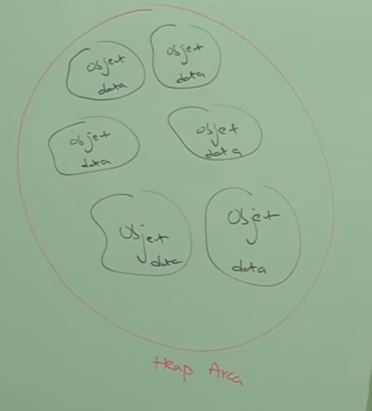 Object
data
Object
data
Object
data
Object
data
Object
data
Object
data
Heap Area